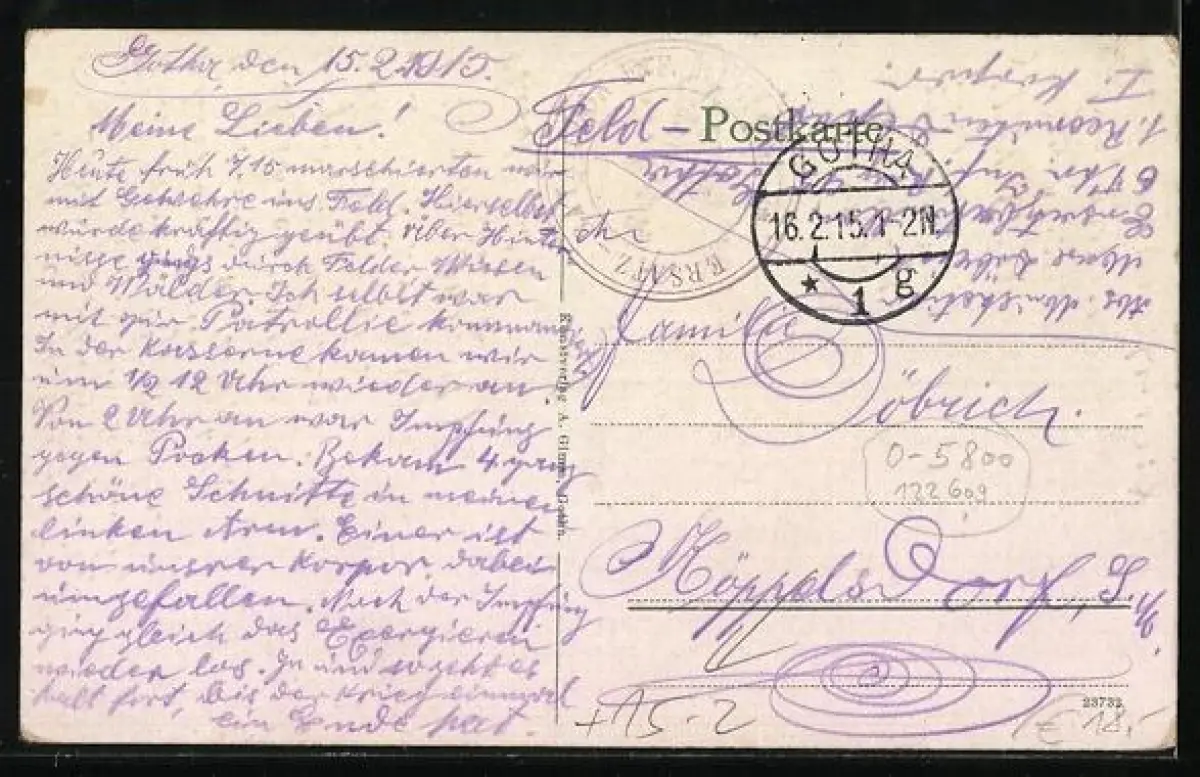 Gotha, den 15.2.1915.
Meine Lieben!
Heute früh 7.15 marschierten wir
mit Gewehre ins Feld. Hierselbst
wurde kräftig geübt. Über Hinter
nisse gings durch Felder Wiesen
und Wälder. Ich selbst war
mit Patrollie
In der Kasserne kamen wir
um 1/2 12 Uhr wieder an.
Von 2 Uhr an war Impfung
gegen Pocken. Bekam 4 ganz
schöne Schnitte in meinen
linken Arm. Einer ist
von unsrer Korpor. dabei
umgefallen. Nach der Impfung
ging gleich das Exerzieren
wieder los. In und so geht es
halt fort, bis der Krieg einmal
ein Ende hat.
Feld - Postkarte
GOTHA
16.2.15.1-2N.
* 1 g
ERSATZ
I. Korpor.
1. Rekruten Depot
Gotha
Familie
Söbrich.
Köppelsdorf, S.
Kunstverlag A. Gotha.
0-5800
122609
+A5-2
23732
€ 18,-